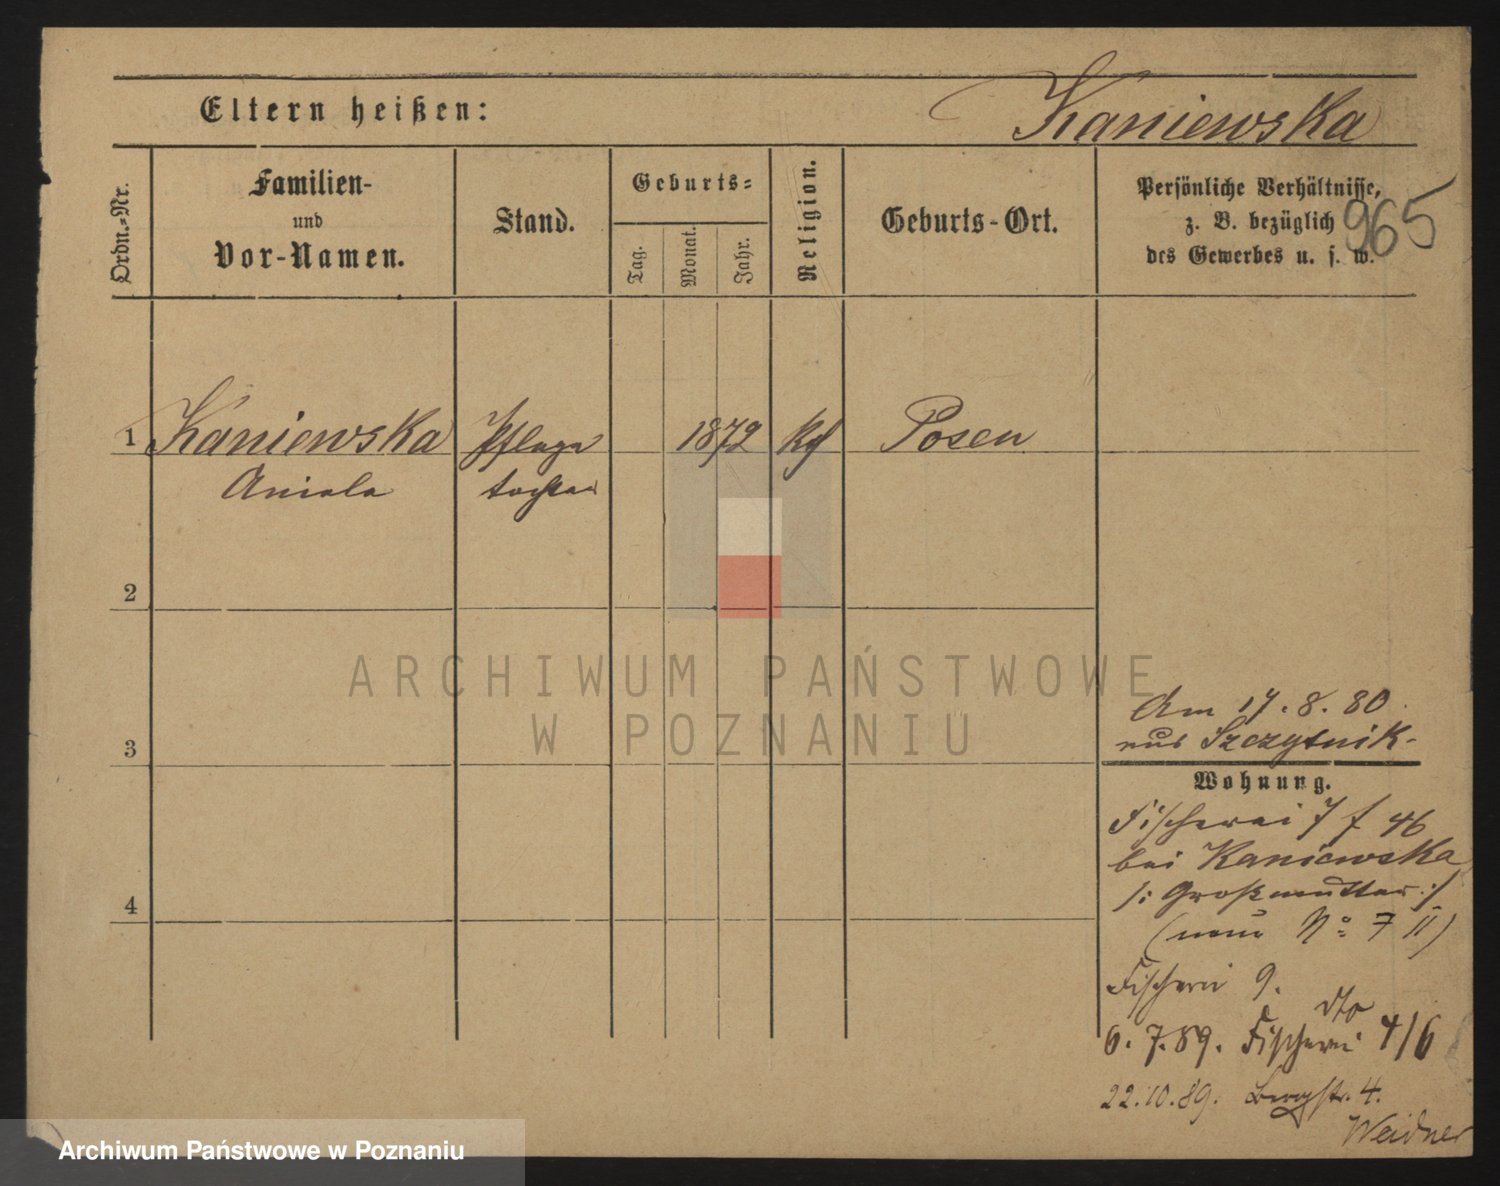 Eltern heißen:
Kaniewska
Ordn.-Nr.
Familien-
und
Vor-Namen.
Stand.
Geburts-
Tag.
Monat.
Jahr.
Religion.
Geburts-Ort.
Persönliche Verhältnisse,
z. B. bezüglich
des Gewerbes u. s. w.
965
1 Kaniewska Pflege 1872 Kath Posen
Aniela tochter
2
3
4
ARCHIWUM PAŃSTWOWE
W POZNANIU
Am 17.8.80
aus Szczytnik-
Wohnung.
Fischerei 7 f 46
bei Kaniewska
/: Großmutter :/
(neue No 7 II)
Fischerei 9.
dto
6.7.89. Fischerei 4/6
22.10.89. Bergstr. 4.
Weidner
Archiwum Państwowe w Poznaniu